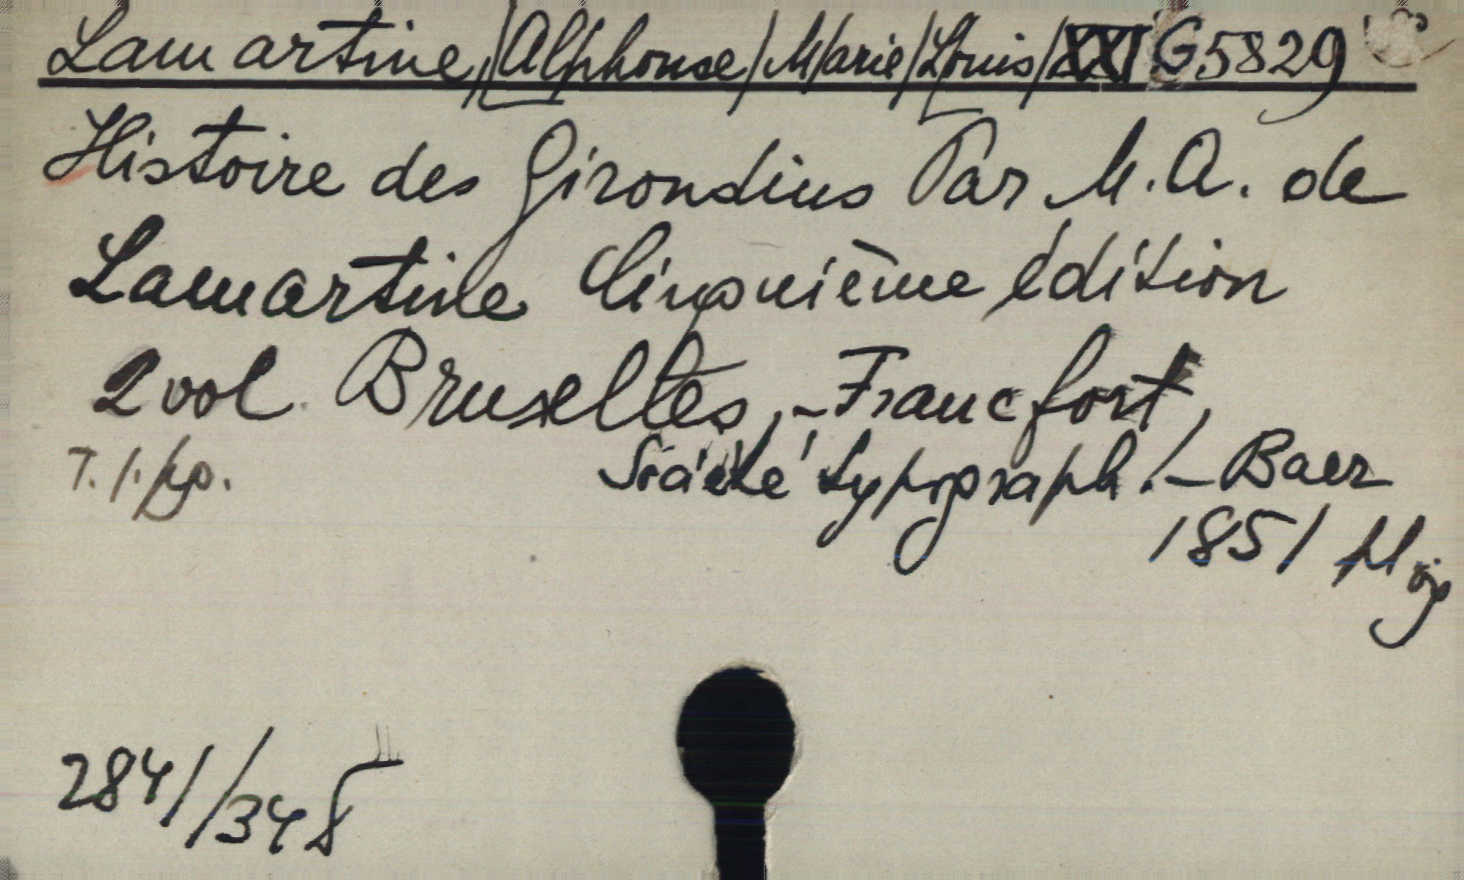 Lamartine, [Alphonse] Marie [Louis] G5829
Histoire des Girondins Par M. A. de
Lamartine Cinquième édition
2 vol. Bruxelles,-Francfort,
T. 1. pp. Société typograph.-Baer
1851
2841/345